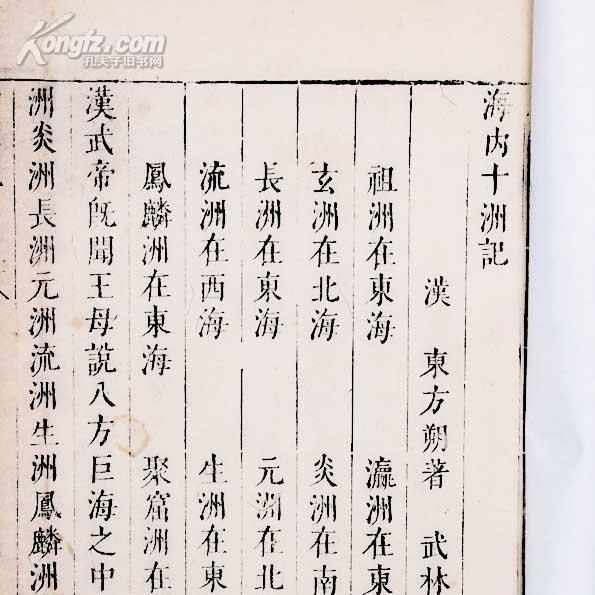 Kongfz.com
孔夫子旧书网
海内十洲記
漢 東方朔著 武林
祖洲在東海 瀛洲在東
玄洲在北海 炎洲在南
長洲在東海 元洲在北
流洲在西海 生洲在東
鳳麟洲在東海 聚窟洲在
漢武帝旣聞王母說八方巨海之中
洲炎洲長洲元洲流洲生洲鳳麟洲